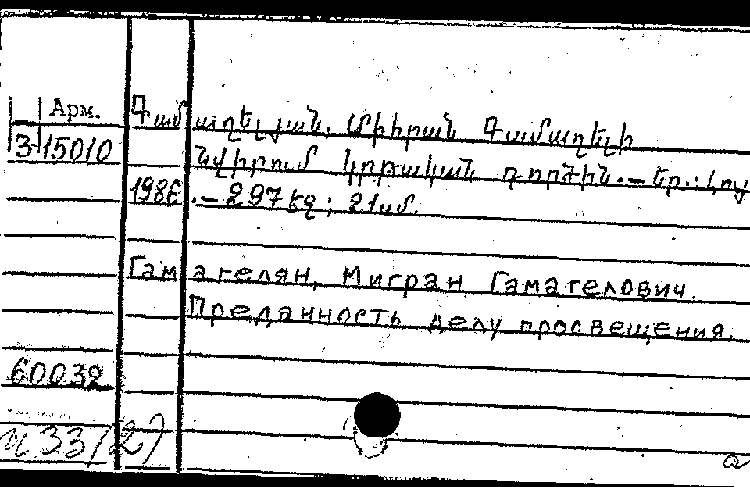 Арм.
Յ-15010
Գամաղելյան, Միհրան Գամաղելի
Նվիրում կրթական գործին. — Եր.: Լույ
1986. — 297 էջ; 21 սմ.
Гамагелян, Мигран Гамагелович.
Преданность делу просвещения.
60032